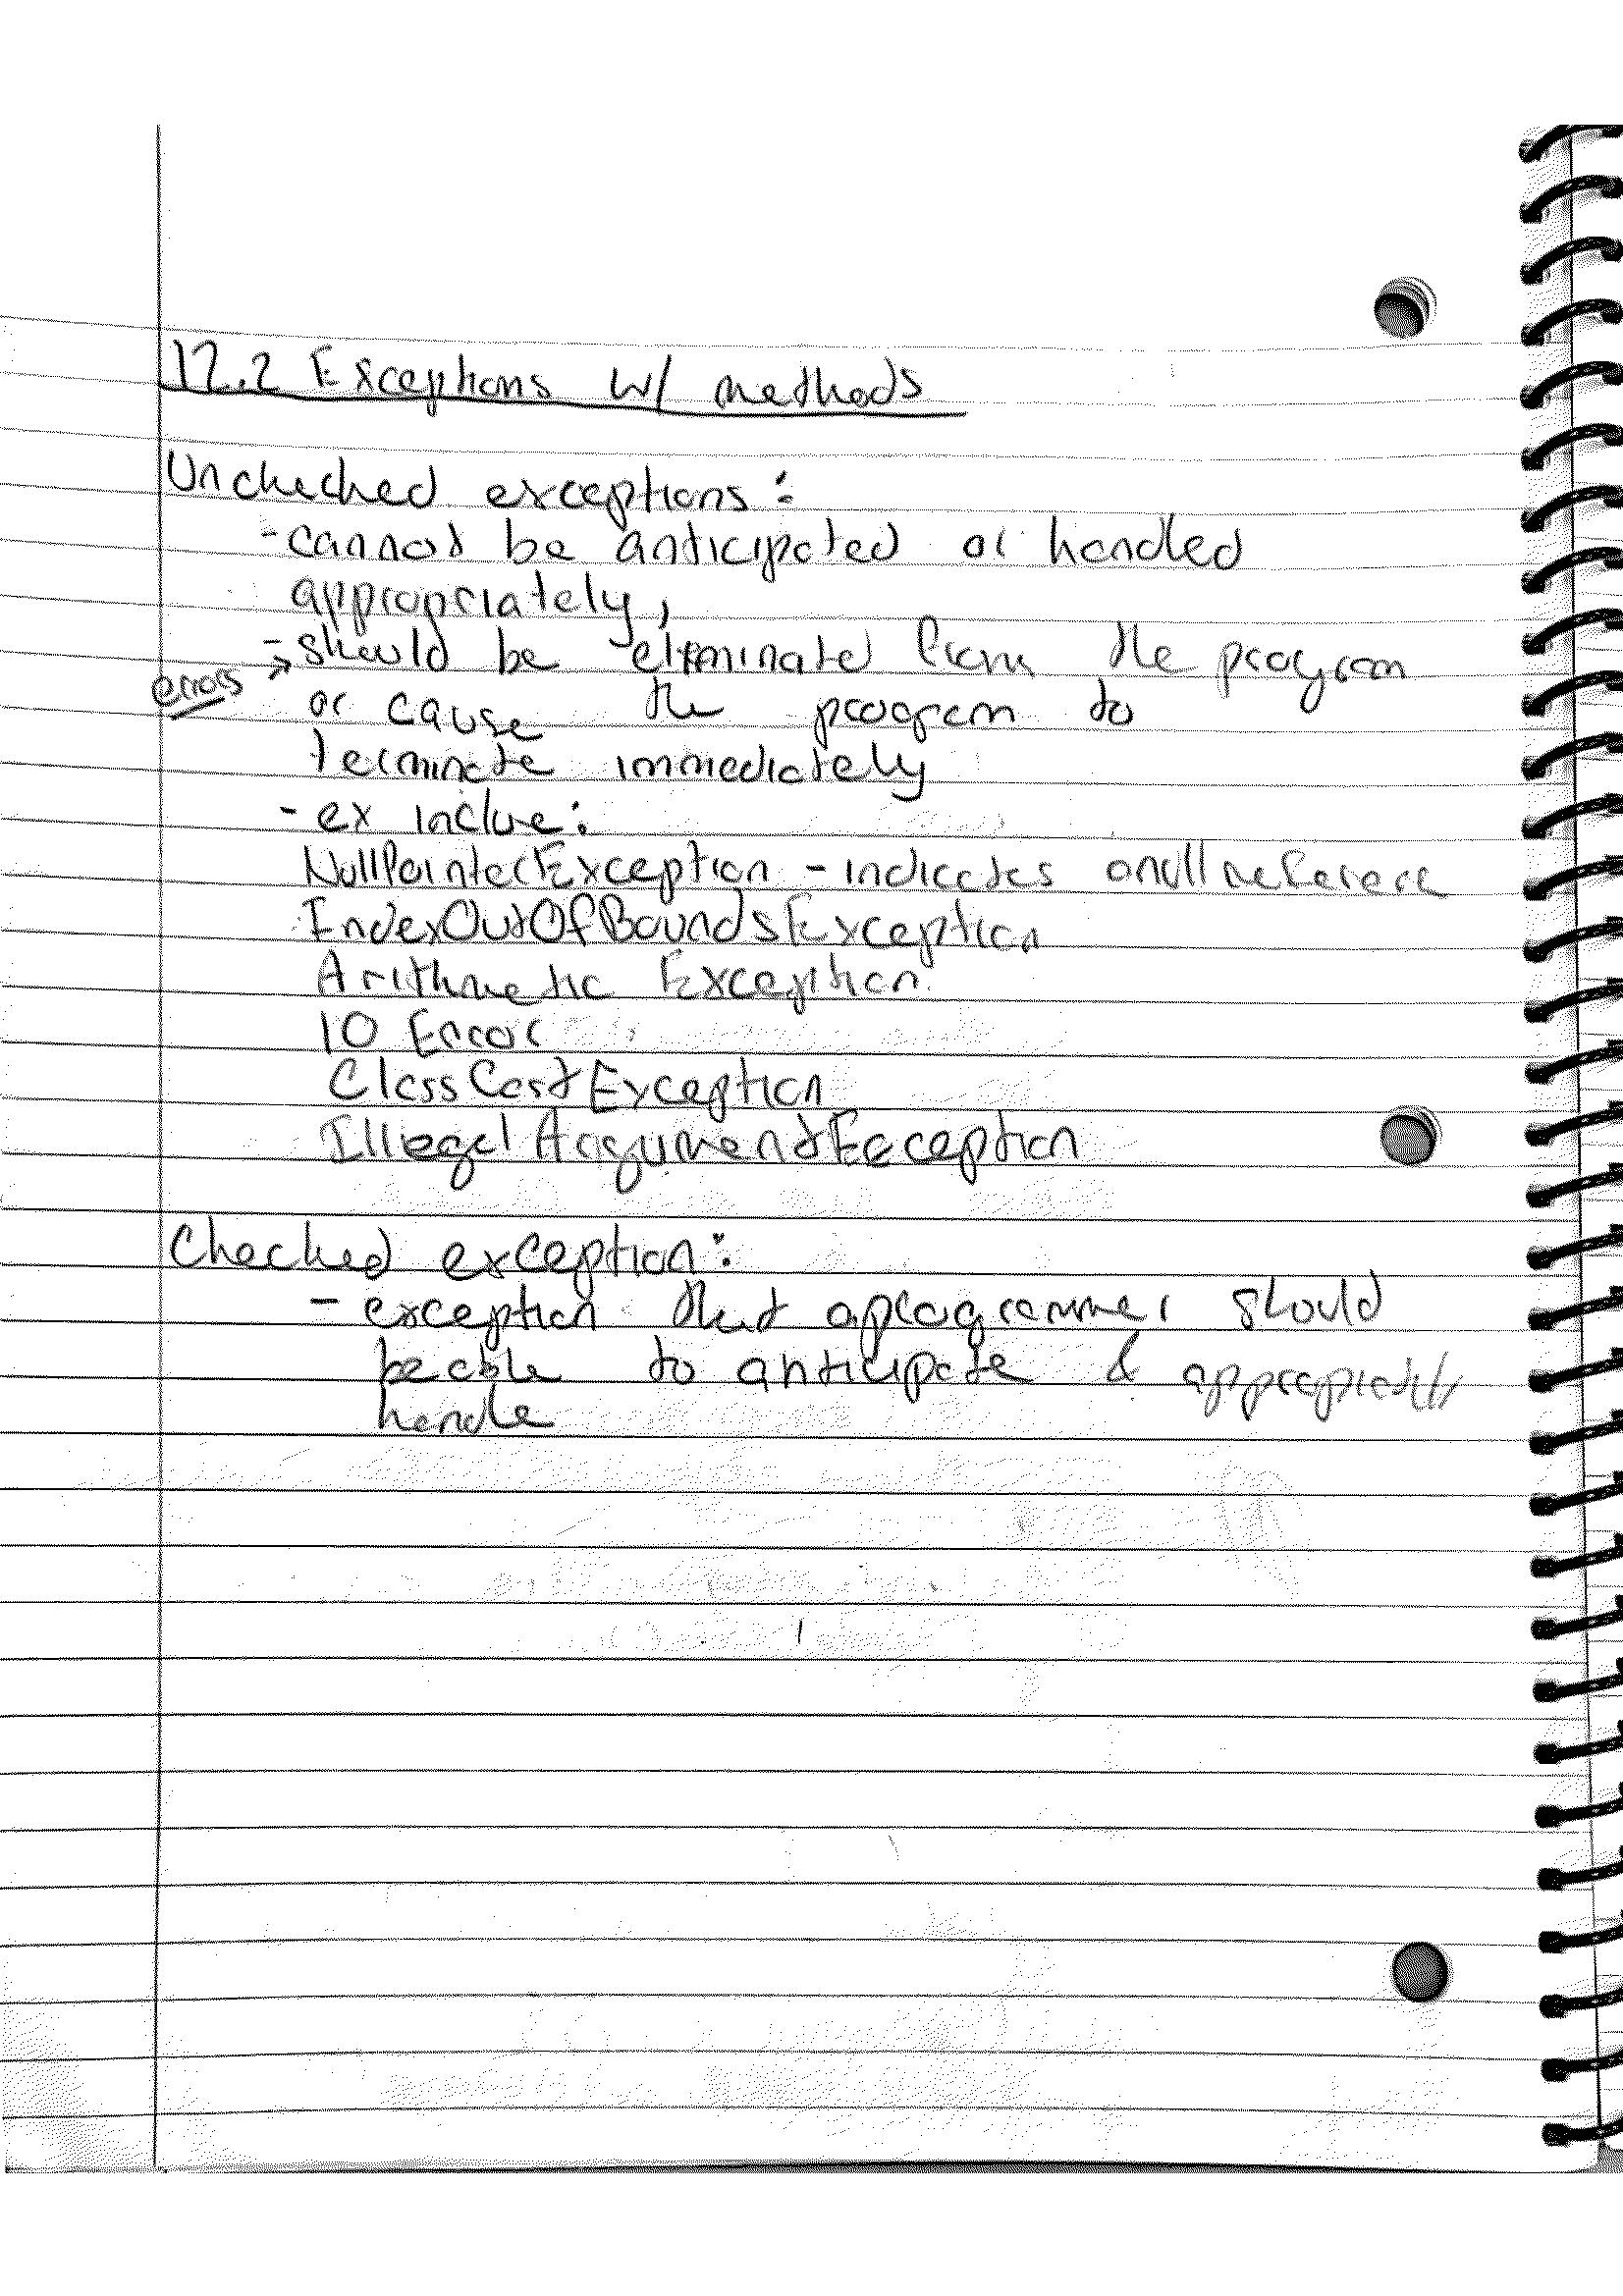 12.2 Exceptions w/ methods
Unchecked exceptions:
- cannot be anticipated or handled
appropriately,
- should be eliminated from the program
errors →
or cause the program to
terminate immediately
- ex inclue:
NullPointerException - indicates a null reference
IndexOutOfBoundsException
Arithmetic Exception
IO Error
ClassCastException
IllegalArgumentException
Checked exception:
- exception that a programmer should
be able to anticipate & appropriately
handle